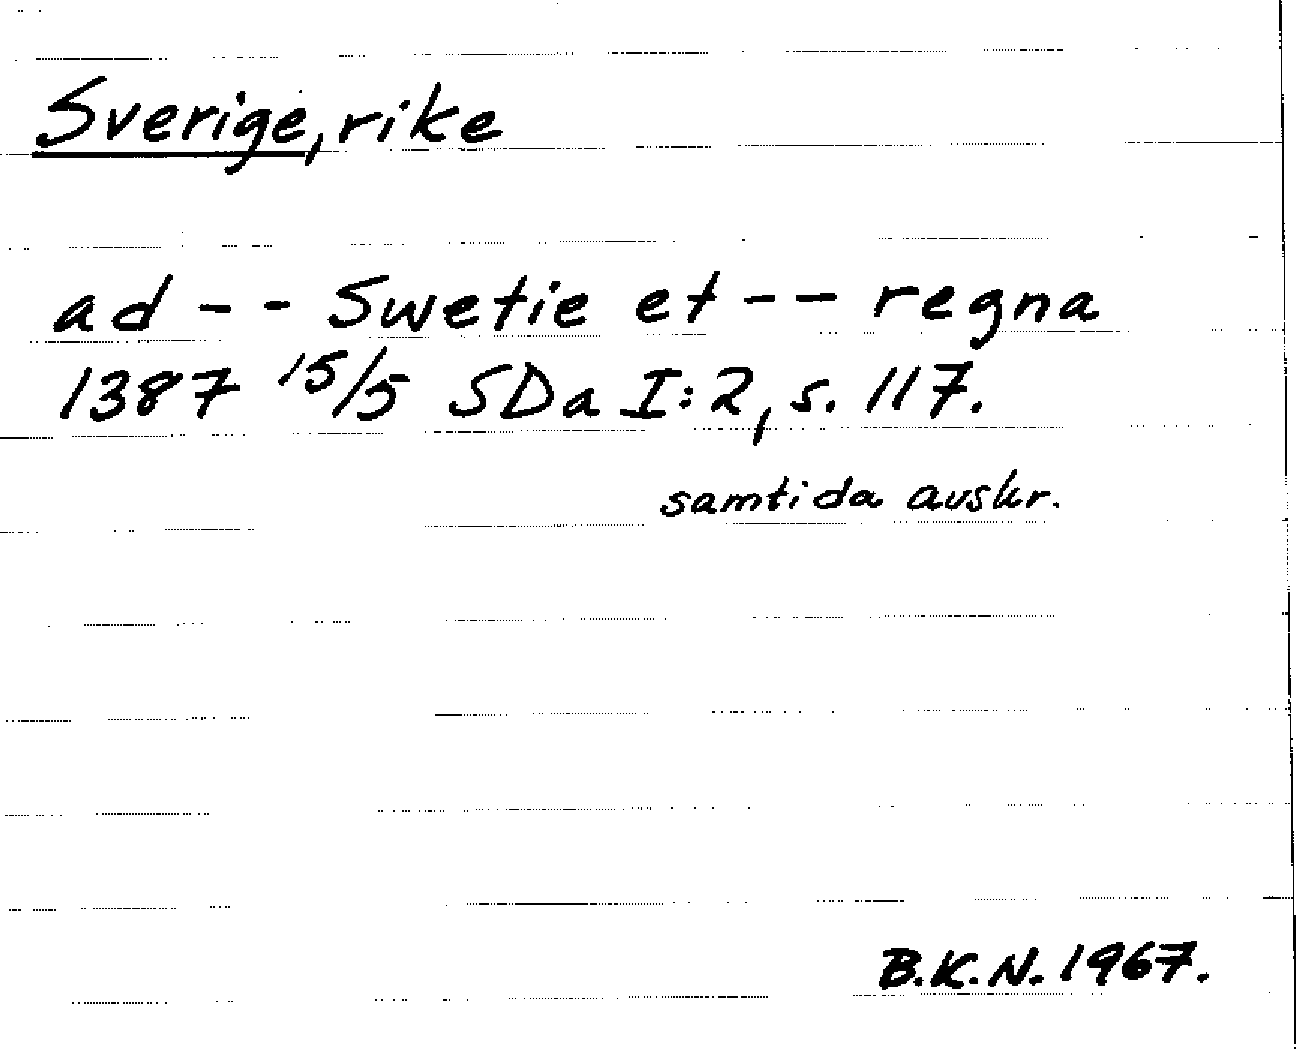 Sverige, rike
ad - - Swetie et - - regna
1387 15/5 SDa I:2, s. 117.
samtida avskr.
B.K.N. 1967.